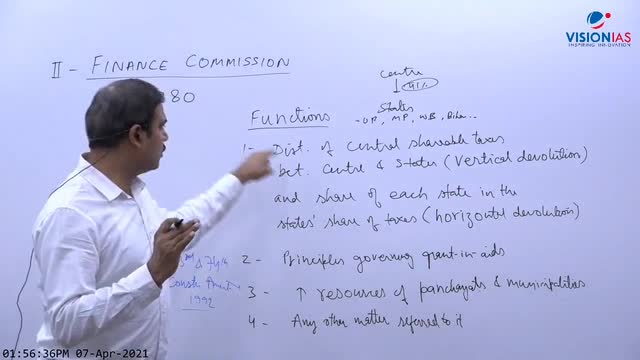 VISIONIAS
INSPIRING INNOVATION
II - FINANCE COMMISSION
80
Centre
↓ 41%
States
- UP, MP, WB, Bihar...
Functions
1- Dist. of central shareable taxes
bet. Centre & States (vertical devolution)
and share of each state in the
states' share of taxes (horizontal devolution)
2 - Principles governing grant-in-aids
3 - ↑ resources of panchayats & municipalities
4 - Any other matter referred to it
74th
1992
01:56:36PM 07-Apr-2021